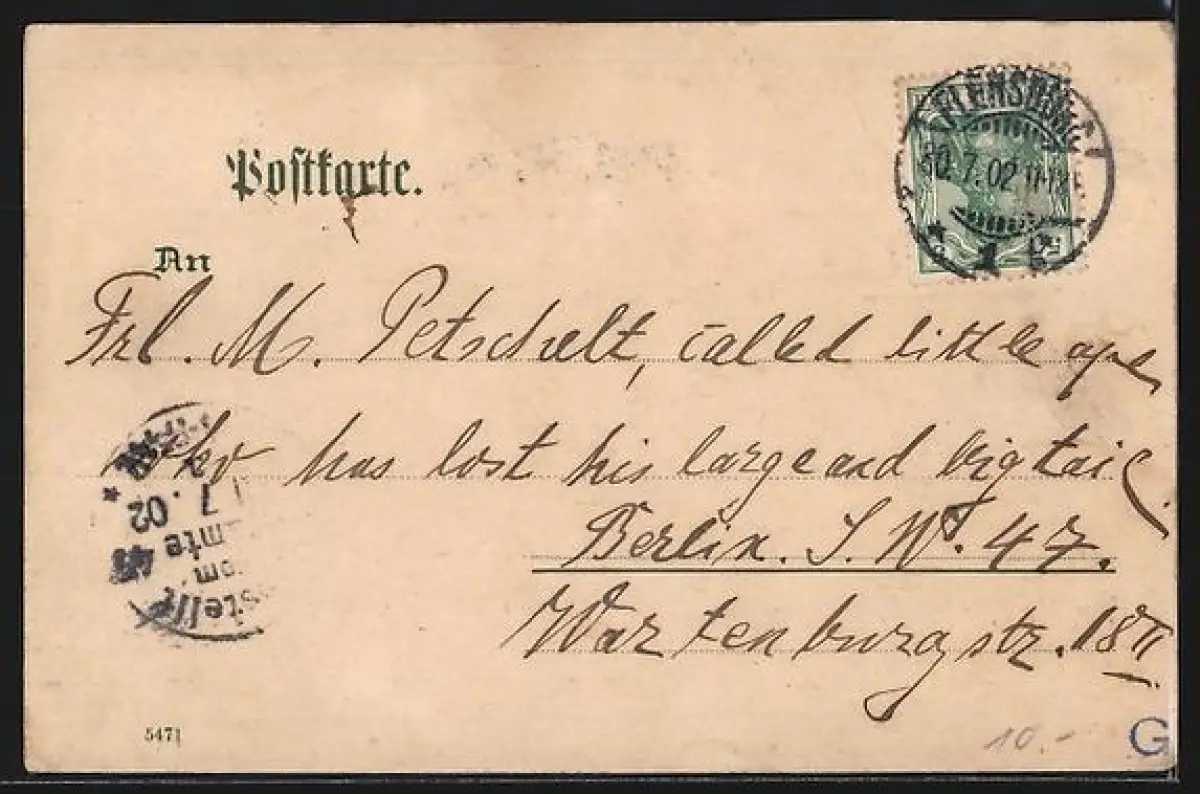 Postkarte.
FLENSBURG
30.7.02 11-12
* 1 k
An
Frl. M. Petschelt, called little ape
who has lost his large and bigtail
Berlin. S. W. 47.
Wartenburgstr. 18 II
7.02
*
5471
10.-
G